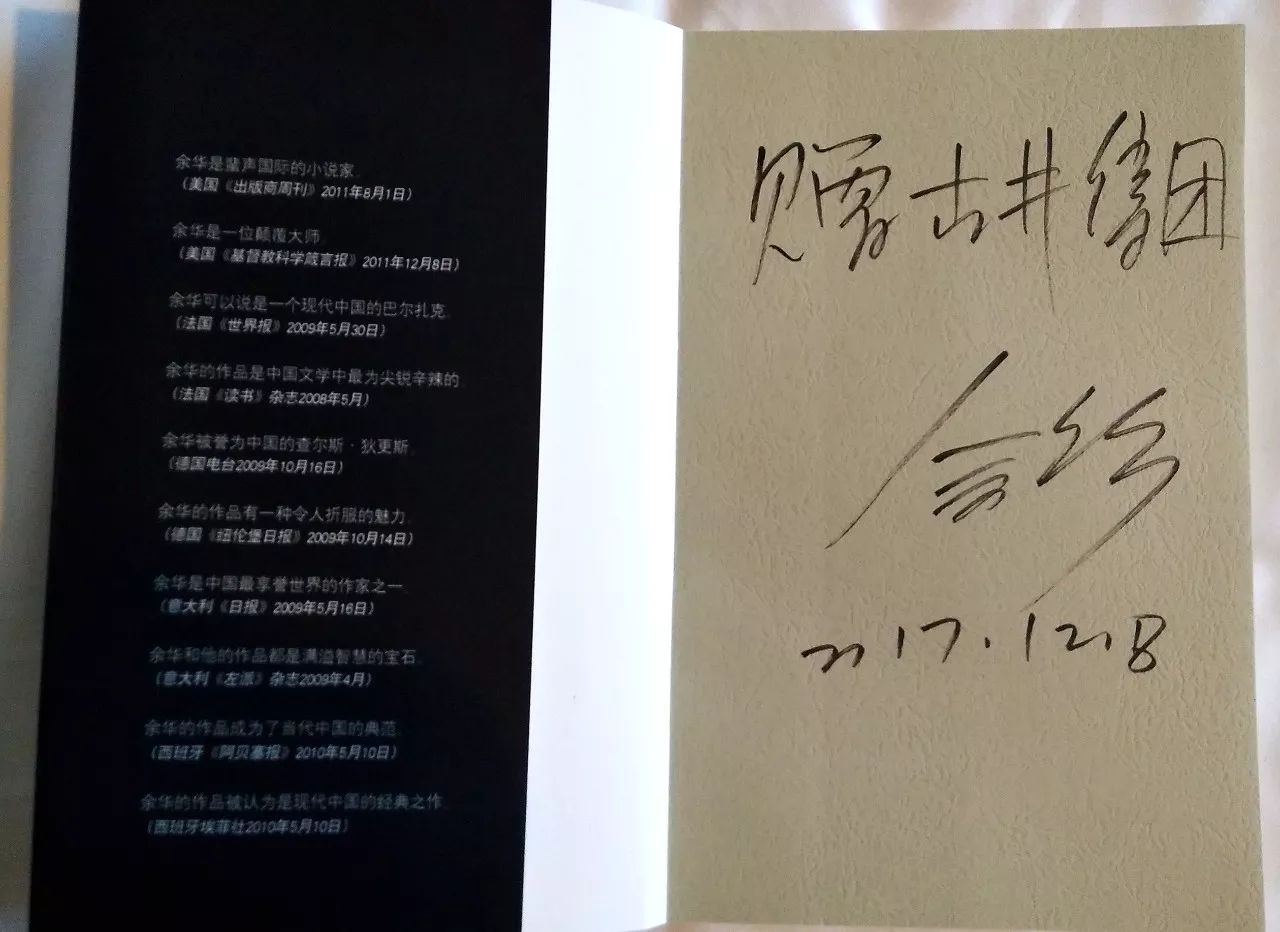 余华是蜚声国际的小说家。
（美国《出版商周刊》2011年8月1日）
余华是一位颠覆大师。
（美国《基督教科学箴言报》2011年12月8日）
余华可以说是一个现代中国的巴尔扎克。
（法国《世界报》2009年5月30日）
余华的作品是中国文学中最为尖锐辛辣的。
（法国《读书》杂志2008年5月）
余华被誉为中国的查尔斯·狄更斯。
（德国电台2009年10月16日）
余华的作品有一种令人折服的魅力。
（德国《纽伦堡日报》2009年10月14日）
余华是中国最享誉世界的作家之一。
（意大利《日报》2009年5月16日）
余华和他的作品都是满溢智慧的宝石。
（意大利《左派》杂志2009年4月）
余华的作品成为了当代中国的典范。
（西班牙《阿贝塞报》2010年5月10日）
余华的作品被认为是现代中国的经典之作。
（西班牙埃菲社2010年5月10日）
赠古井集团
余华
2017.12.8